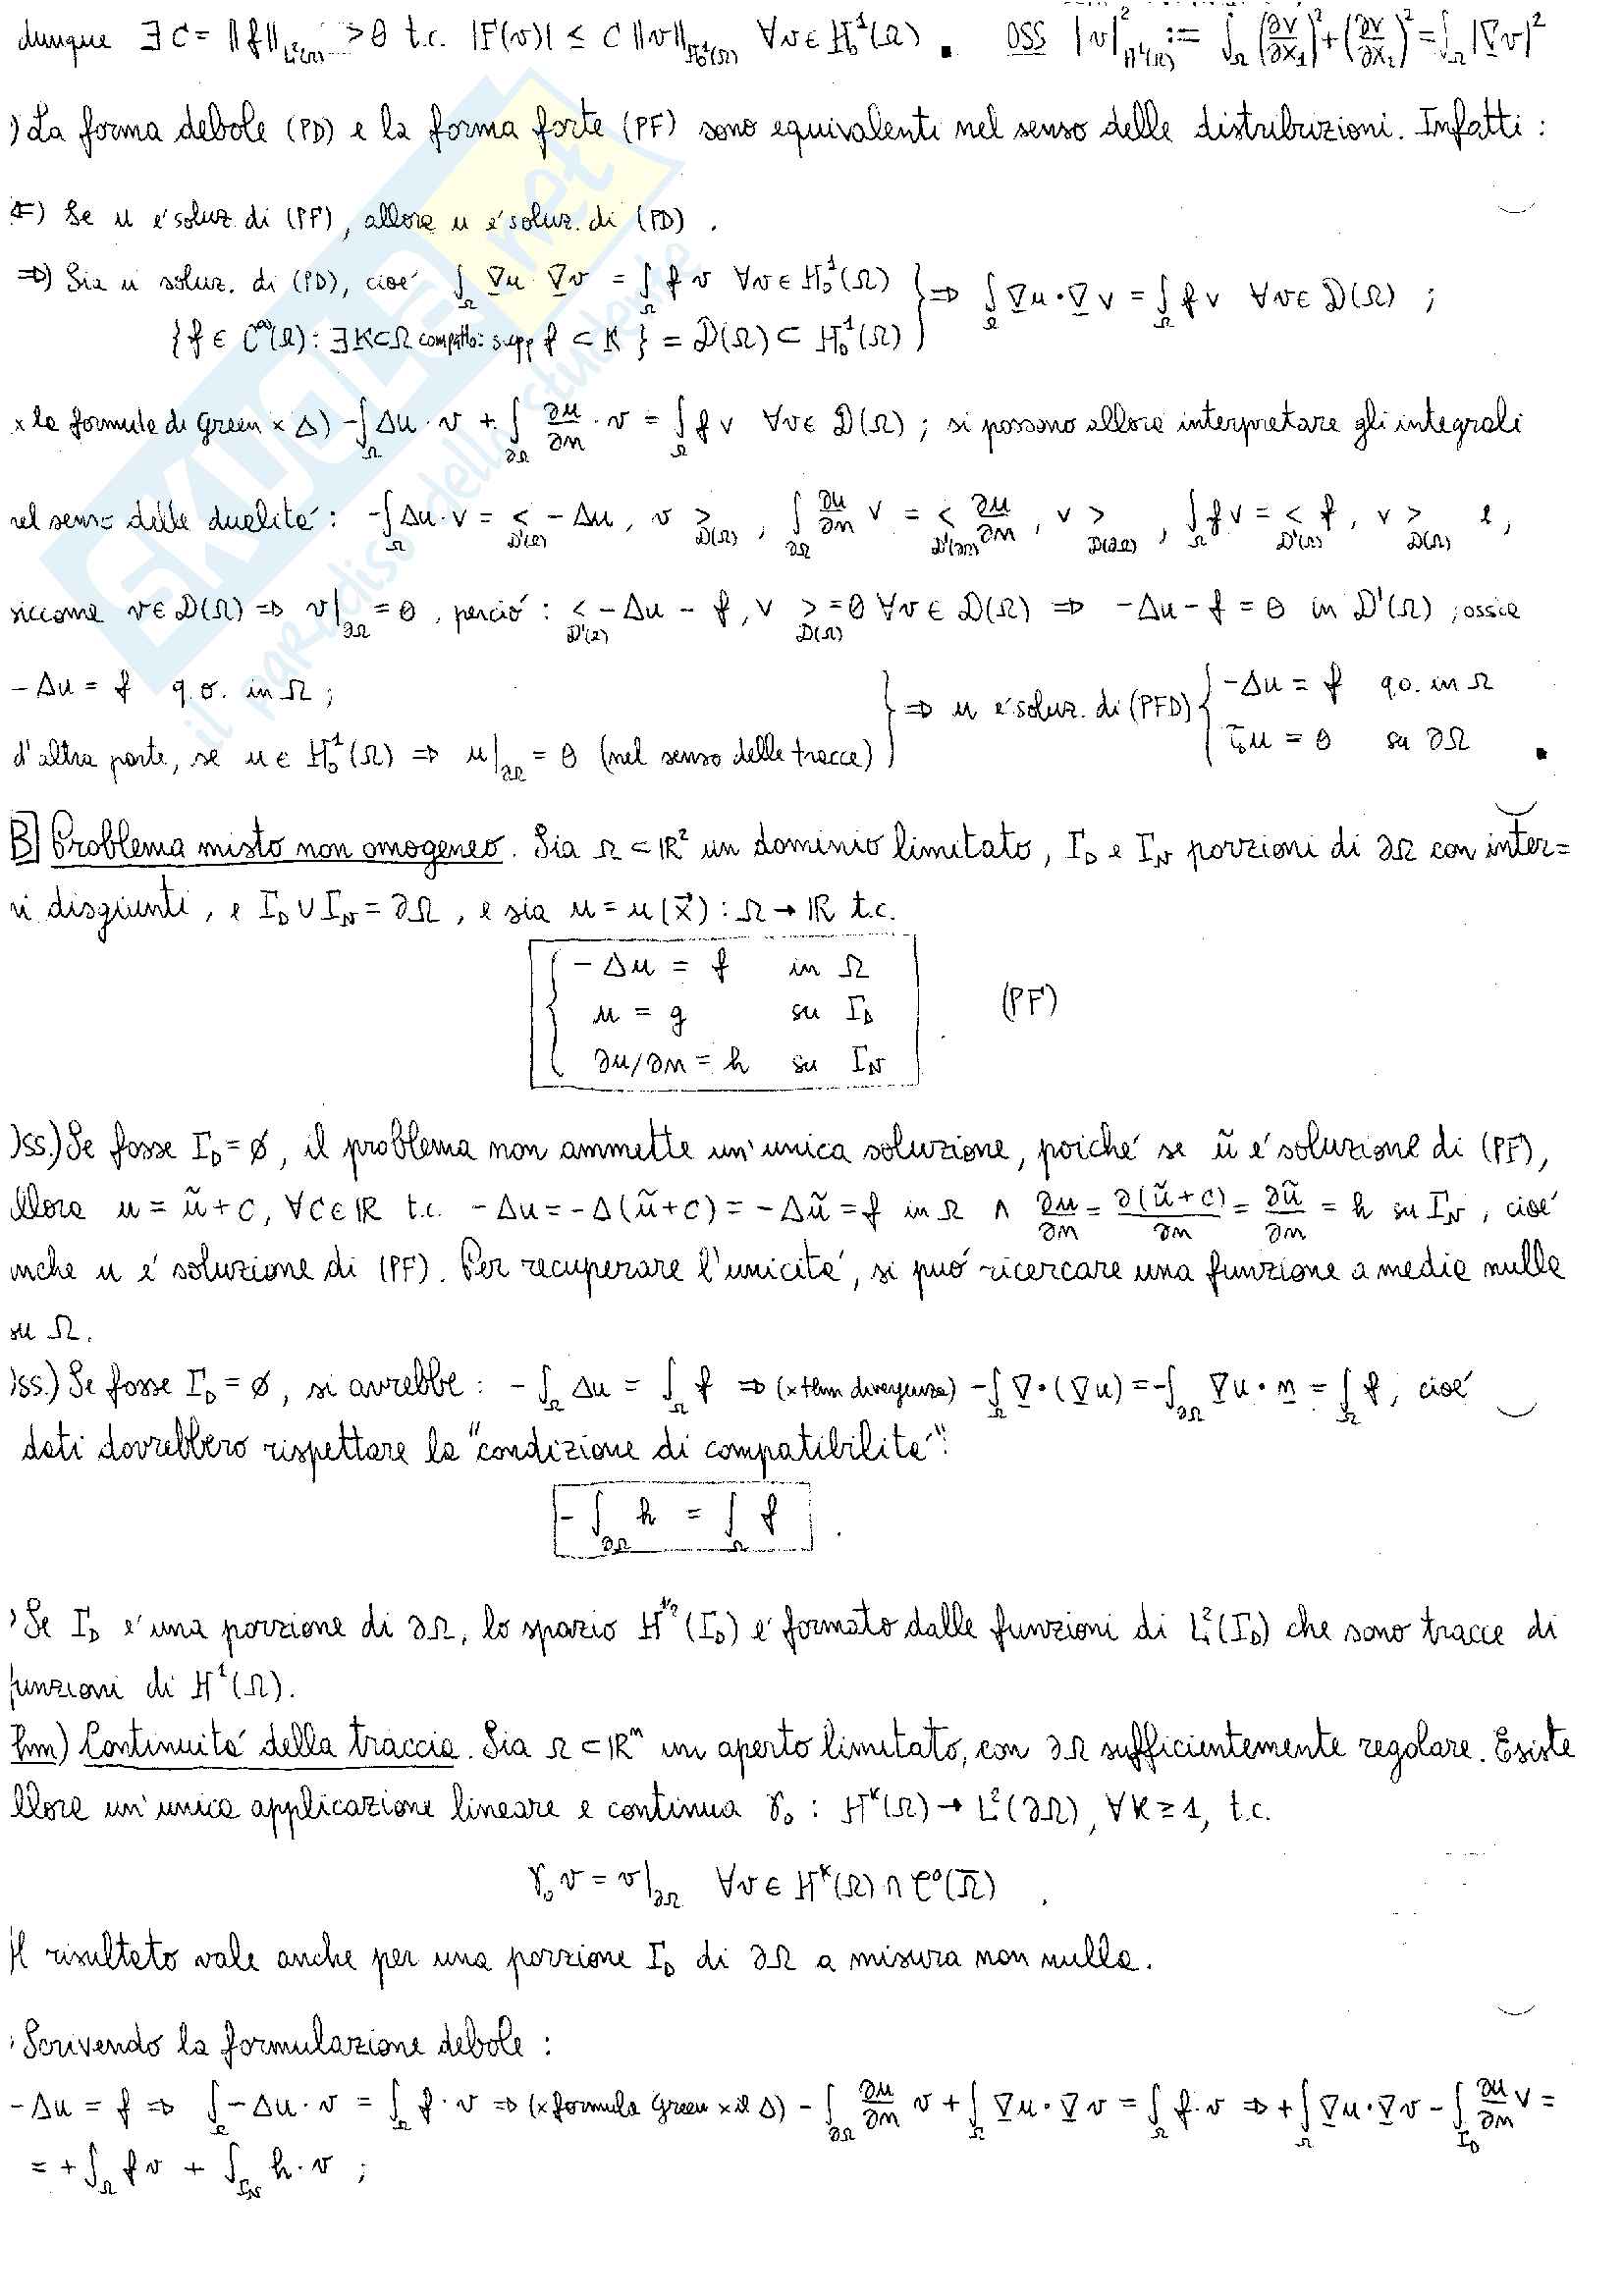 dunque ∃ C = ‖f‖_{L²(Ω)} > 0 t.c. |F(v)| ≤ C ‖v‖_{H¹₀(Ω)} ∀v ∈ H¹₀(Ω) ■ OSS |v|²_{H¹(Ω)} := ∫_Ω (∂v/∂x₁)² + (∂v/∂x₂)² = ∫_Ω |∇v|²
) La forma debole (PD) e la forma forte (PF) sono equivalenti nel senso delle distribuzioni. Infatti :
⇐) Se u é soluz. di (PF), allora u é soluz. di (PD) .
⇒) Sia u soluz. di (PD), cioé ∫_Ω ∇u · ∇v = ∫_Ω f v ∀v ∈ H¹₀(Ω) } ⇒ ∫_Ω ∇u · ∇v = ∫_Ω f v ∀v ∈ D(Ω) ;
{ f ∈ C^∞(Ω) : ∃K⊂Ω compatto: supp f ⊂ K } = D(Ω) ⊂ H¹₀(Ω)
x la formula di Green x Δ) -∫_Ω Δu · v + ∫_∂Ω ∂u/∂n · v = ∫_Ω f v ∀v ∈ D(Ω) ; si possono allora interpretare gli integrali
nel senso delle dualitá : -∫_Ω Δu · v = _{D'(Ω)}< -Δu , v >_{D(Ω)} , ∫_∂Ω ∂u/∂n v = _{D'(∂Ω)}< ∂u/∂n , v >_{D(∂Ω)} , ∫_Ω f v = _{D'(Ω)}< f , v >_{D(Ω)} e,
siccome v ∈ D(Ω) ⇒ v|_∂Ω = 0 , perció : _{D'(Ω)}< -Δu - f , v >_{D(Ω)} = 0 ∀v ∈ D(Ω) ⇒ -Δu - f = 0 in D'(Ω) ; ossia
-Δu = f q.o. in Ω ; } ⇒ u é soluz. di (PFD) { -Δu = f q.o. in Ω
d'altra parte, se u ∈ H¹₀(Ω) ⇒ u|_∂Ω = 0 (nel senso delle tracce) γ₀u = 0 su ∂Ω ■
B] Problema misto non omogeneo. Sia Ω ⊂ ℝ² un dominio limitato, Γ_D e Γ_N porzioni di ∂Ω con inter=
ni disgiunti, e Γ_D ∪ Γ_N = ∂Ω , e sia u = u(x⃗) : Ω → ℝ t.c.
{ -Δu = f in Ω
u = g su Γ_D (PF)
∂u/∂n = h su Γ_N
)ss.) Se fosse Γ_D = ∅, il problema non ammette un'unica soluzione, poiché se ũ é soluzione di (PF),
allora u = ũ + c, ∀c ∈ ℝ t.c. -Δu = -Δ(ũ+c) = -Δũ = f in Ω ∧ ∂u/∂n = ∂(ũ+c)/∂n = ∂ũ/∂n = h su Γ_N , cioé
anche u é soluzione di (PF). Per recuperare l'unicitá, si puó ricercare una funzione a media nulla
su Ω.
)ss.) Se fosse Γ_D = ∅, si avrebbe : -∫_Ω Δu = ∫_Ω f ⇒ (x thm divergenza) -∫_Ω ∇·(∇u) = -∫_∂Ω ∇u · n = ∫_Ω f, cioé
dati dovrebbero rispettare la "condizione di compatibilitá":
-∫_∂Ω h = ∫_Ω f .
) Se Γ_D é una porzione di ∂Ω, lo spazio H^{1/2}(Γ_D) é formato dalle funzioni di L²(Γ_D) che sono tracce di
funzioni di H¹(Ω).
Thm) Continuitá della traccia. Sia Ω ⊂ ℝⁿ un aperto limitato, con ∂Ω sufficientemente regolare. Esiste
allora un'unica applicazione lineare e continua γ₀ : H^k(Ω) → L²(∂Ω), ∀k ≥ 1, t.c.
γ₀v = v|_∂Ω ∀v ∈ H^k(Ω) ∩ C⁰(Ω̅) .
Il risultato vale anche per una porzione Γ_D di ∂Ω a misura non nulla.
Scrivendo la formulazione debole :
-Δu = f ⇒ ∫_Ω -Δu · v = ∫_Ω f · v ⇒ (x formula Green x il Δ) -∫_∂Ω ∂u/∂n v + ∫_Ω ∇u · ∇v = ∫_Ω f · v ⇒ +∫_Ω ∇u · ∇v - ∫_{Γ_D} ∂u/∂n v =
= +∫_Ω f v + ∫_{Γ_N} h · v ;